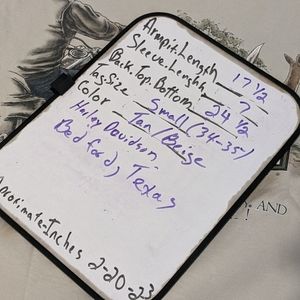 Armpit.Length 17 1/2
Sleeve.Length 7
Back.Top.Bottom 24 1/2
Tag.Size Small (34-35)
Color Tan/Beige
Harley Davidson
Bedford, Texas
Aproximate-Inches 2-20-23
AND